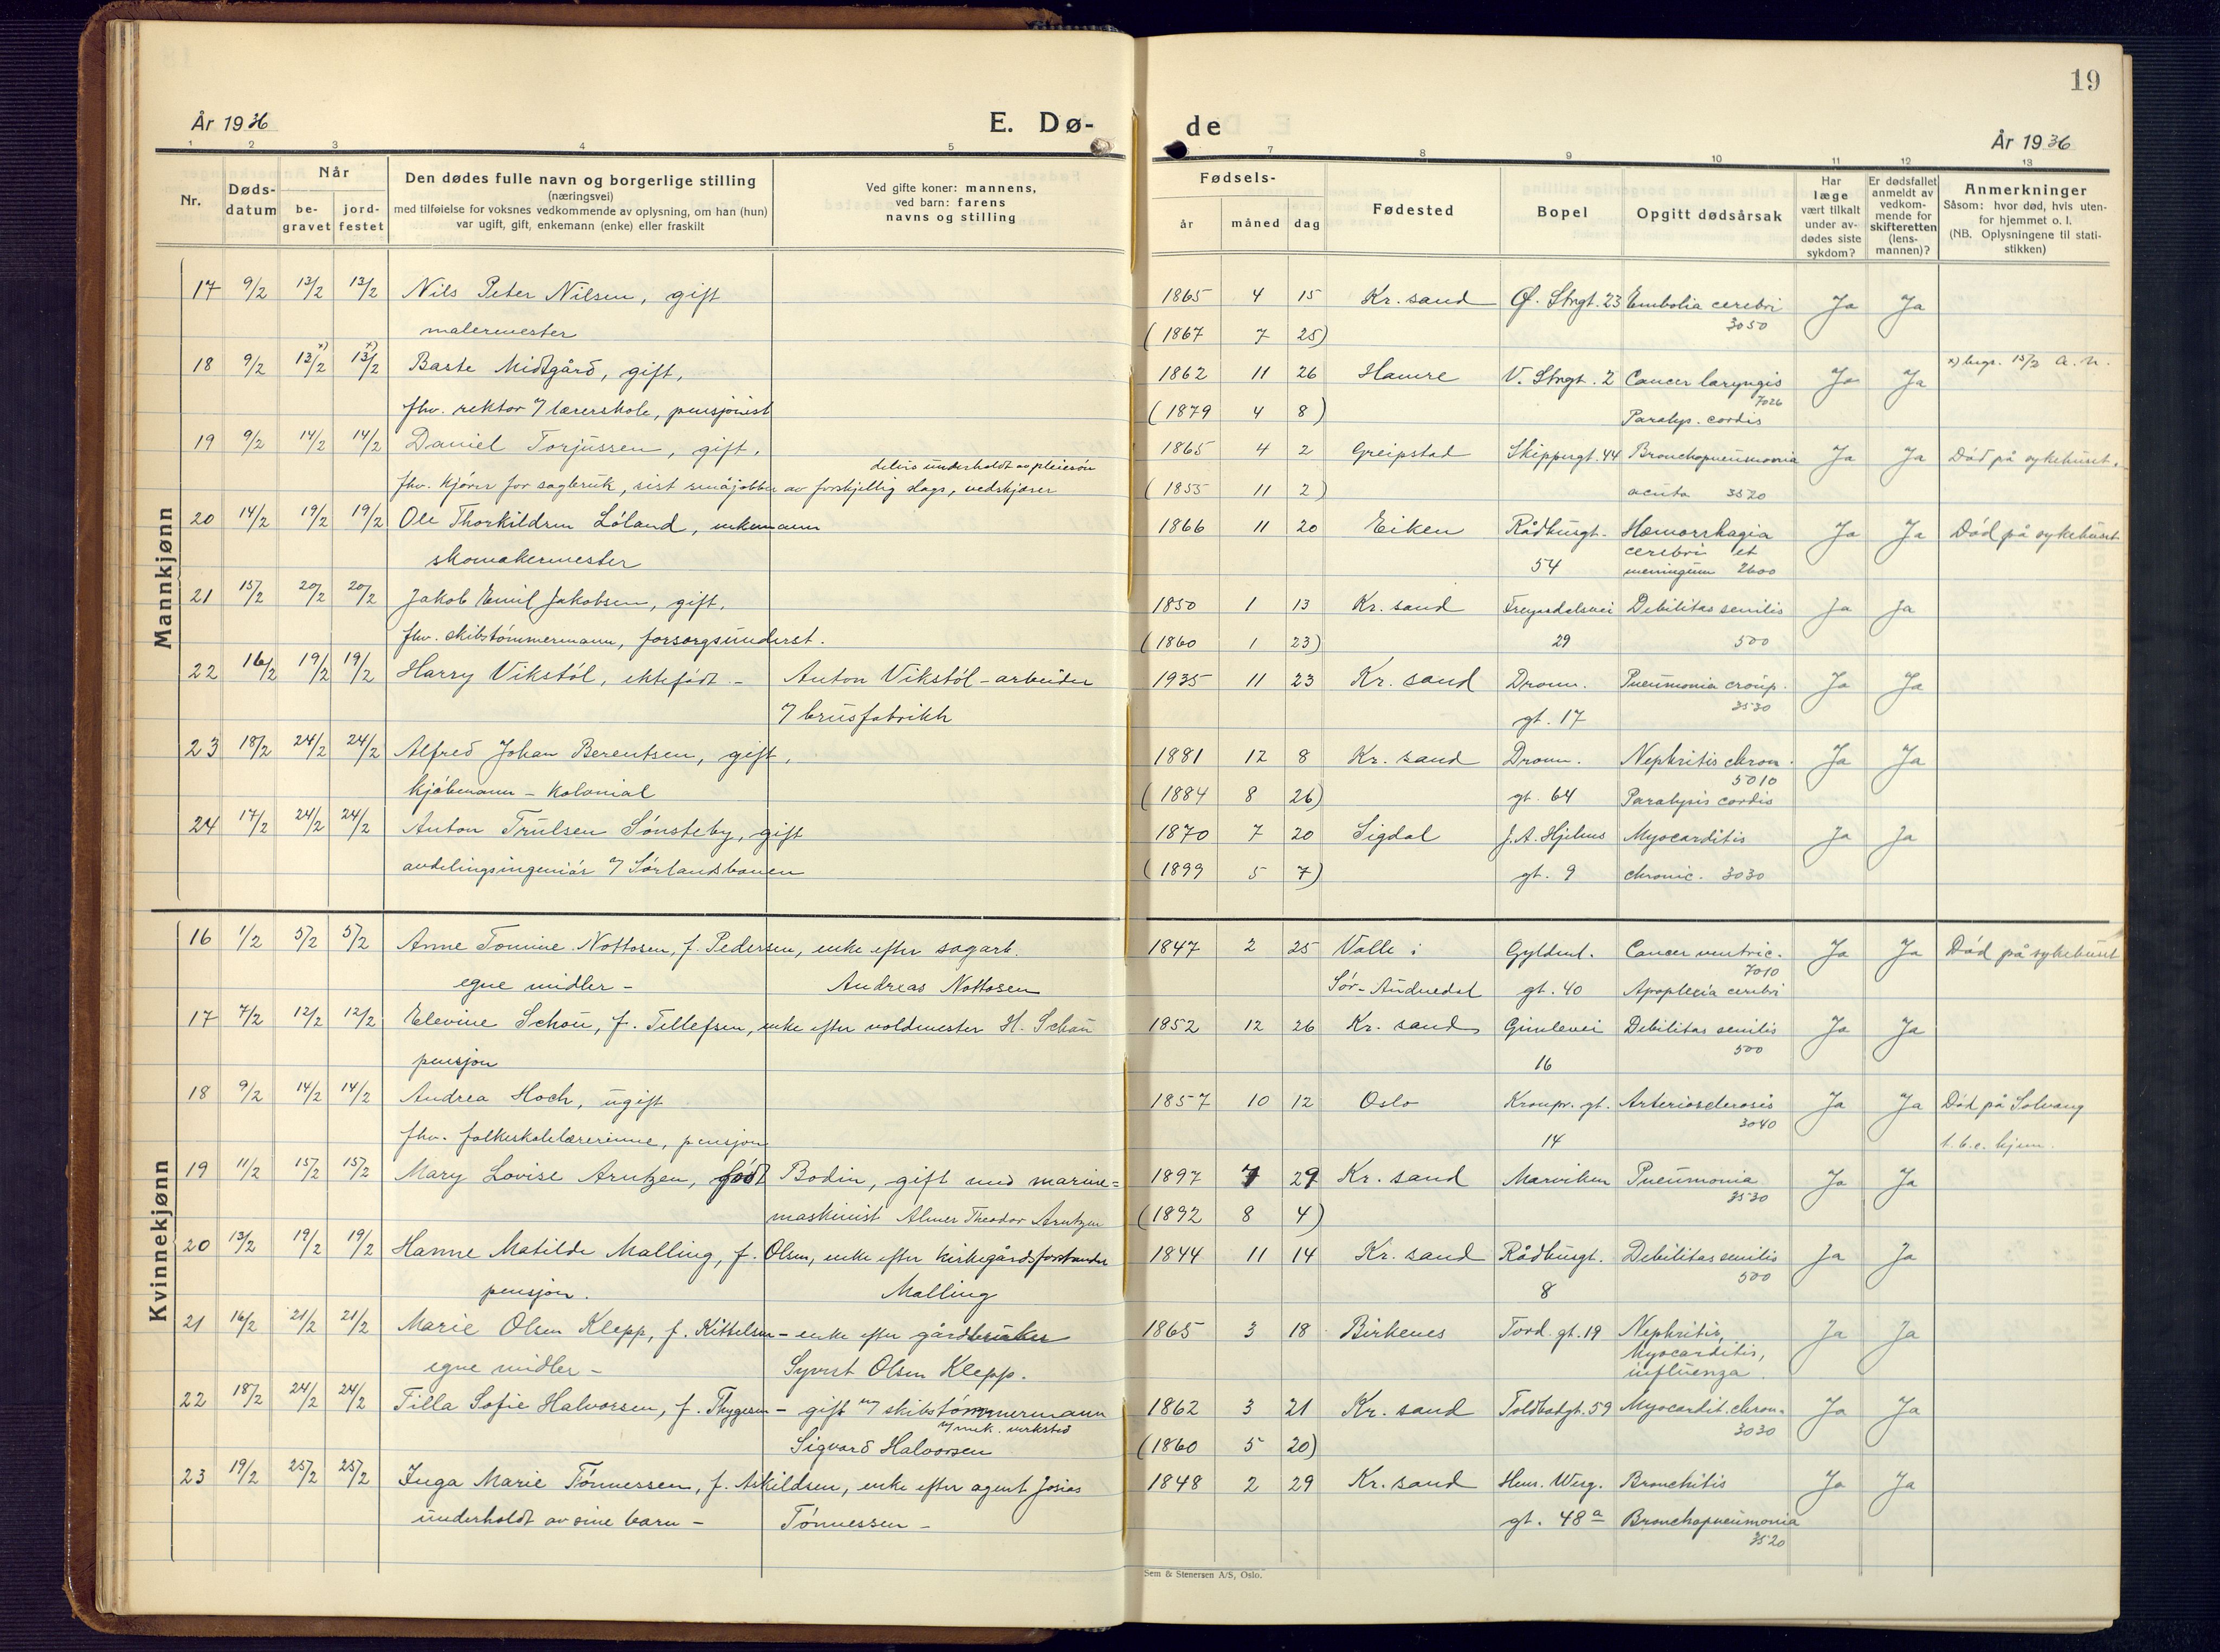 19
År 1936
E. Dø-
de
År 1936
1 2 3 4 5 7 8 9 10 11 12 13
Nr.
Døds-
datum
Når
be-
gravet
jord-
festet
Den dødes fulle navn og borgerlige stilling
(næringsvei)
med tilføielse for voksnes vedkommende av oplysning, om han (hun)
var ugift, gift, enkemann (enke) eller fraskilt
Ved gifte koner: mannens,
ved barn: farens
navns og stilling
Fødsels-
år måned dag
Fødested
Bopel
Opgitt dødsårsak
Har
læge
vært tilkalt
under av-
dødes siste
sykdom?
Er dødsfallet
anmeldt av
vedkom-
mende for
skifteretten
(lens-
mannen)?
Anmerkninger
Såsom: hvor død, hvis uten-
for hjemmet o. l.
(NB. Oplysningene til stati-
stikken)
Mannkjønn
17 9/2 13/2 13/2 Nils Peter Nilsen, gift 1865 4 15 Kr. sand Ø. Strgt. 23 Embolia cerebri Ja Ja
malermester (1867 7 25) 3050
18 9/2 13/2 x) 13/2 x) Baste Midtgård, gift, 1862 11 26 Hamre V. Strgt. 2 Cancer laryngis Ja Ja x) begr. 15/2 a. n.
7026
fhv. rektor v/ lærerskole, pensjonist (1879 4 8) Paralys. cordis
19 9/2 14/2 14/2 Daniel Torjussen, gift, 1865 4 2 Greipstad Skippergt. 44 Bronchopneumonia Ja Ja Død på sykehuset.
delvis underholdt av pleiesøn
fhv. kjører for sagbruk, sist småjobber av forskjellig slags, vedskjærer (1855 11 2) acuta 3520
20 14/2 19/2 19/2 Ole Thorkildsen Løland, enkemann 1866 11 20 Eiken Rådhusgt. Hæmorrhagia Ja Ja Død på sykehuset
cerebri et
skomakermester 54 meningum 2600
21 15/2 20/2 20/2 Jakob Emil Jakobsen, gift, 1850 1 13 Kr. sand Debilitas senilis Ja Ja
fhv. skibstømmermann, forsorgsunderst. (1860 1 23) 29 500
22 16/2 19/2 19/2 Harry Vikstøl, ektefødt. - Anton Vikstøl - arbeider 1935 11 23 Kr. sand Dronn. Pneumonia croup. Ja Ja
v/ brusfabrikk gt. 17 3530
23 18/2 24/2 24/2 Alfred Johan Berentsen, gift, 1881 12 8 Kr. sand Dronn. Nephritis chron. Ja Ja
5010
kjøbmann - kolonial (1884 8 26) gt. 64 Paralysis cordis
24 17/2 24/2 24/2 Anton Trulsen Sønsteby, gift 1870 7 20 Sigdal J. A. Hjelms Myocarditis Ja Ja
avdelingsingeniør v/ Sørlandsbanen (1899 5 7) gt. 9 chronic. 3030
Kvinnekjønn
16 1/2 5/2 5/2 Anne Tomine Nottosen, f. Pedersen, enke efter sagarb. 1847 2 25 Valle i Gyldenl. Cancer ventric. Ja Ja Død på sykehuset
7010
egne midler - Andreas Nottosen Sør-Audnedal gt. 40 Apoplexia cerebri
17 7/2 12/2 12/2 Elevine Schou, f. Tellefsen, enke efter voldmester H. Schou 1852 12 26 Kr. sand Gimlevei Debilitas senilis Ja Ja
pensjon 16 500
18 9/2 14/2 14/2 Andrea Hoch, ugift 1857 10 12 Oslo Kronpr. gt. Arteriosclerosis Ja Ja Død på Solvang
3040
fhv. folkeskolelærerinne, pensjon 14
19 11/2 15/2 15/2 Mary Lovise Arntzen, født Bodin, gift med marine= 1897 7 29 Kr. sand Marviken Pneumonia Ja Ja
3530
maskinist Almer Theodor Arntzen (1892 8 4)
20 13/2 19/2 19/2 Hanne Matilde Malling, f. Olsen, enke efter kirkegårdsforstander 1844 11 14 Kr. sand Rådhusgt. Debilitas senilis Ja Ja
pensjon. Malling 8 500
21 16/2 21/2 21/2 Marie Olsen Klepp, f. Kittelsen - enke efter gårdbruker 1865 3 18 Birkenes Tord. gt. 19 Nephritis, Ja Ja
Myocarditis,
egne midler - Syvert Olsen Klepp. influenza.
22 18/2 24/2 24/2 Tilla Sofie Halvorsen, f. Thygesen - gift m/ skibstømmermann 1862 3 21 Kr. sand Toldbodgt. 59 Myocardit. chron. Ja Ja
v/ mek. verksted
Sigvard Halvorsen (1860 5 20) 3030
23 19/2 25/2 25/2 Inga Marie Tønnessen, f. Askildsen, enke efter agent Josias 1848 2 29 Kr. sand Henr. Werg. Bronchitis Ja Ja
underholdt av sine barn - Tønnessen - gt. 48a Bronchopneumonia
3520
Sem & Stenersen A/S, Oslo.